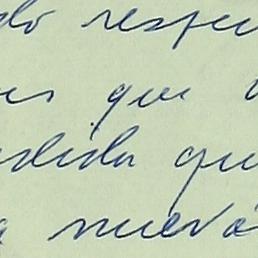 do respe
es que
dida qu
a nueva